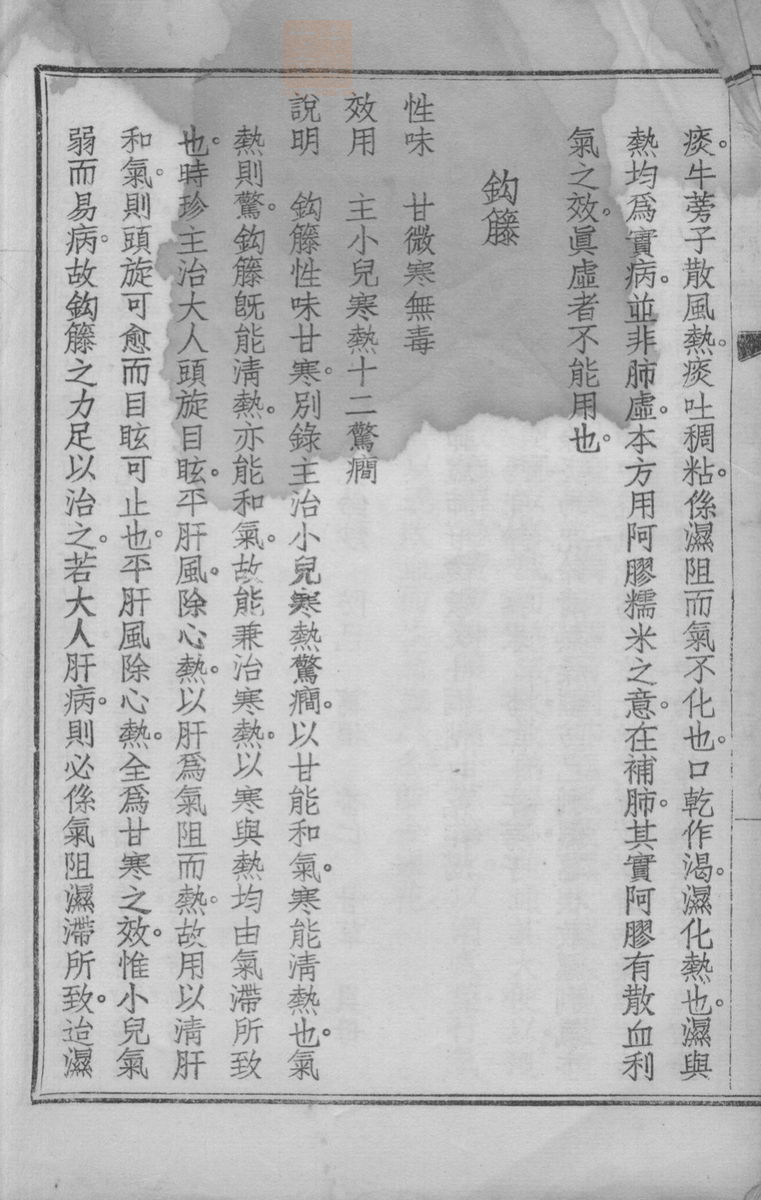 痰。牛蒡子散風熱。痰吐稠粘。係濕阻而氣不化也。口乾作渴。濕化熱也。濕與
熱均爲實病。並非肺虛。本方用阿膠糯米之意。在補肺。其實阿膠有散血利
氣之效。眞虛者不能用也。
鈎籐
性味　甘微寒無毒
效用　主小兒寒熱十二驚癎
說明　鈎籐性味甘寒。別錄主治小兒寒熱驚癎。以甘能和氣。寒能淸熱也。氣
熱則驚。鈎籐旣能淸熱。亦能和氣。故能兼治寒熱。以寒與熱均由氣滯所致
也。時珍主治大人頭旋目眩。平肝風。除心熱。以肝爲氣阻而熱。故用以淸肝
和氣。則頭旋可愈而目眩可止也。平肝風除心熱。全爲甘寒之效。惟小兒氣
弱而易病。故鈎籐之力足以治之。若大人肝病。則必係氣阻濕滯所致。迨濕